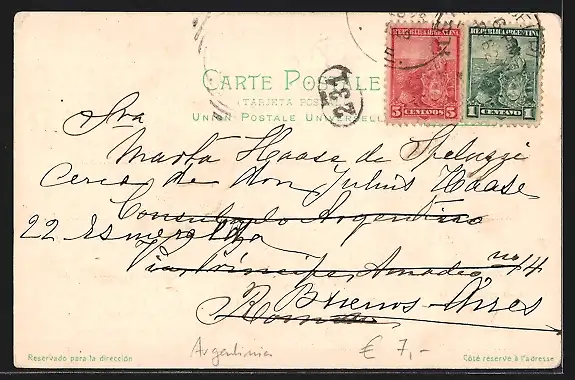 REPUBLICA ARGENTINA
5 CENTAVOS 5
REPUBLICA ARGENTINA
1 CENTAVO 1
CARTE POSTALE
(TARJETA POSTAL)
UNION POSTALE UNIVERSELLE
Sra
Marta Haase de Speluzzi
Cerca de don Julius Haase
Consulado Argentino
22 Esmeralda
Via Principe Amadeo no 44
Buenos-Aires
Roma
Reservado para la dirección
Argentinien
€ 7,-
Côté réservé à l'adresse